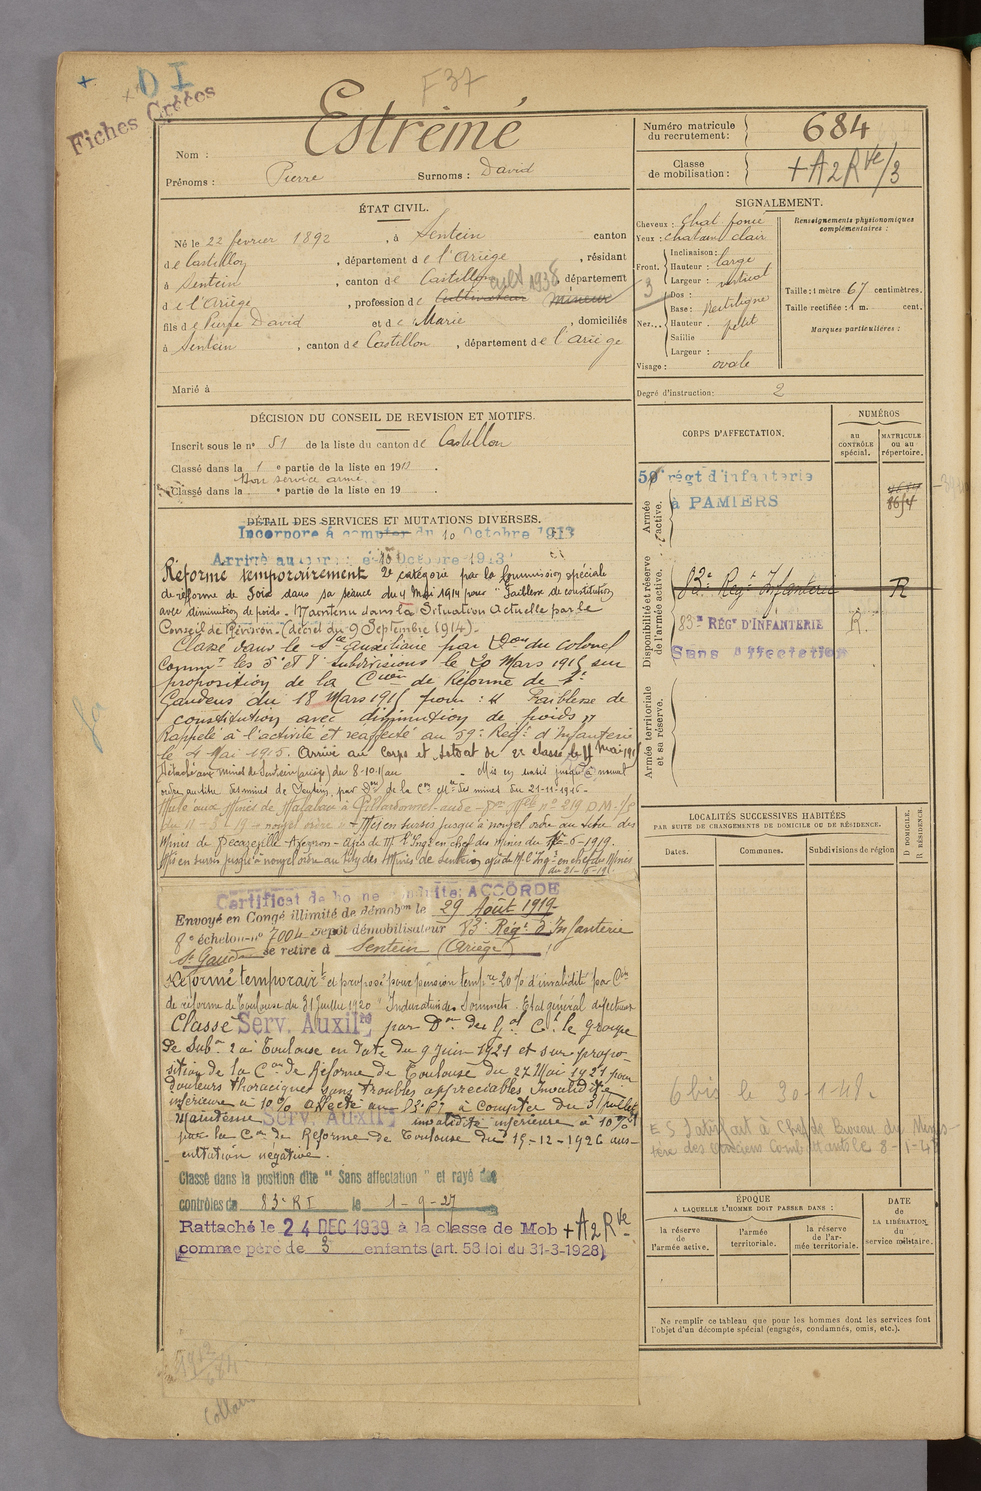 + D I
F 37
Fiches Créées
Nom : Estrémé
Prénoms : Pierre Surnoms : David
Numéro matricule du recrutement : 684
Classe de mobilisation : + A 2 R ve/3
ÉTAT CIVIL.
Né le 22 fevrier 1892, à Sentein canton
de Castillon, département de l'Ariège, résidant
à Sentein, canton de Castillon, département
cult 1938
de l'Ariège, profession de Cultivateur Mineur
fils de Pierre David et de Marie, domiciliés
à Sentein, canton de Castillon, département de l'Ariège
Marié à
SIGNALEMENT.
Cheveux : Chat foncé
Yeux : chatain clair
Front. Inclinaison :
Hauteur : large
Largeur : vertical
3
Nez... Dos :
Base : Rectiligne
Hauteur : petit
Saillie
Largeur :
Visage : ovale
Renseignements physionomiques complémentaires :
Taille : 1 mètre 67 centimètres.
Taille rectifiée : 1 m. cent.
Marques particulières :
Degré d'instruction : 2
DÉCISION DU CONSEIL DE REVISION ET MOTIFS.
Inscrit sous le n° 51 de la liste du canton de Castillon
Classé dans la 1 e partie de la liste en 191
Bon service armé
Classé dans la e partie de la liste en 19
DÉTAIL DES SERVICES ET MUTATIONS DIVERSES.
Incorporé à compter du 10 Octobre 1913
Arrivé au corps le 10 Octobre 1913
Réformé temporairement 2e catégorie par la Commission spéciale
de réforme de Foix dans sa séance du 4 Mai 1914 pour "Faiblesse de constitution
avec diminution de poids. Maintenu dans la Situation Actuelle par le
Conseil de Révision. (décret du 9 Septembre 1914).
Classé dans le Sce auxiliaire par Don du Colonel
Commt les 5e et 8e subdivisions le 20 Mars 1915 sur
proposition de la Cion de Réforme de St
Gaudens du 18 Mars 1915 pour : "Faiblesse de
constitution avec diminution de poids"
Rappelé à l'activité et réaffecté au 59e Regt d'Infanterie
le 4 Mai 1915. Arrivé au Corps et Soldat de 2e classe le 4 Mai 1915
Détaché aux mines de Sentein (ariège) du 8-10-1 au Mis en sursis jusqu'à nouvel
ordre au titre des mines de Sentein, par du 21-11-1916.
nouvel ordre Mis en sursis jusqu'à nouvel ordre au titre des
Mines de Decazeville Aveyron
Mis en sursis jusqu'à nouvel ordre au titre des Mines de Sentein
Certificat de bonne conduite: ACCORDÉ
Envoyé en Congé illimité de démobon le 29 Août 1919
8e échelon no 7004 Dépôt démobilisateur 83e Régt d'Infanterie
St Gaudens se retire à Sentein (Ariège)
Réformé temporairt et proposé pour pension tempre 20% d'invalidité par Con
de réforme de Toulouse du 31 Juillet 1920 "Induration des Sommets. Etat général défectueux
Classé Serv. Auxilre par Don du Gal Ct le groupe
de Subon 2 à Toulouse en date du 9 Juin 1921 et sur propo-
sition de la Con de Réforme de Toulouse du 27 Mai 1921 pour
douleurs thoraciques sans troubles appréciables Invalidité
inférieure à 10% affecté au 83e RI à compter du 3 Juillet
Maintenu Serv. Auxil invalidité inférieure à 10%
par la Con de Réforme de Toulouse du 15-12-1926 aus-
cultation négative.
Classé dans la position dite "Sans affectation" et rayé des
contrôles de 83e R I le 1-9-27
Rattaché le 24 DEC 1939 à la classe de Mob + A 2 R ve
comme père de 3 enfants (art. 58 loi du 31-3-1928)
CORPS D'AFFECTATION.
NUMÉROS
AU CONTRÔLE spécial.
MATRICULE OU AU répertoire.
Armée active.
59e régt d'infanterie
à PAMIERS
Disponibilité et réserve de l'armée active.
83e Regt Infanterie R
83e RÉGt D'INFANTERIE R.
Sans affectation
Armée territoriale et sa réserve.
LOCALITÉS SUCCESSIVES HABITÉES
PAR SUITE DE CHANGEMENTS DE DOMICILE OU DE RÉSIDENCE.
Dates. Communes. Subdivisions de région
D DOMICILE. R RÉSIDENCE.
6 bis le 30-1-48.
E S Satisfait à Chef de Bureau du Minis-
tère des Anciens Combattants le 8-1-4
ÉPOQUE
A LAQUELLE L'HOMME DOIT PASSER DANS :
la réserve de l'armée active.
l'armée territoriale.
la réserve de l'armée territoriale.
DATE de LA LIBÉRATION du service militaire.
Ne remplir ce tableau que pour les hommes dont les services font
l'objet d'un décompte spécial (engagés, condamnés, omis, etc.).